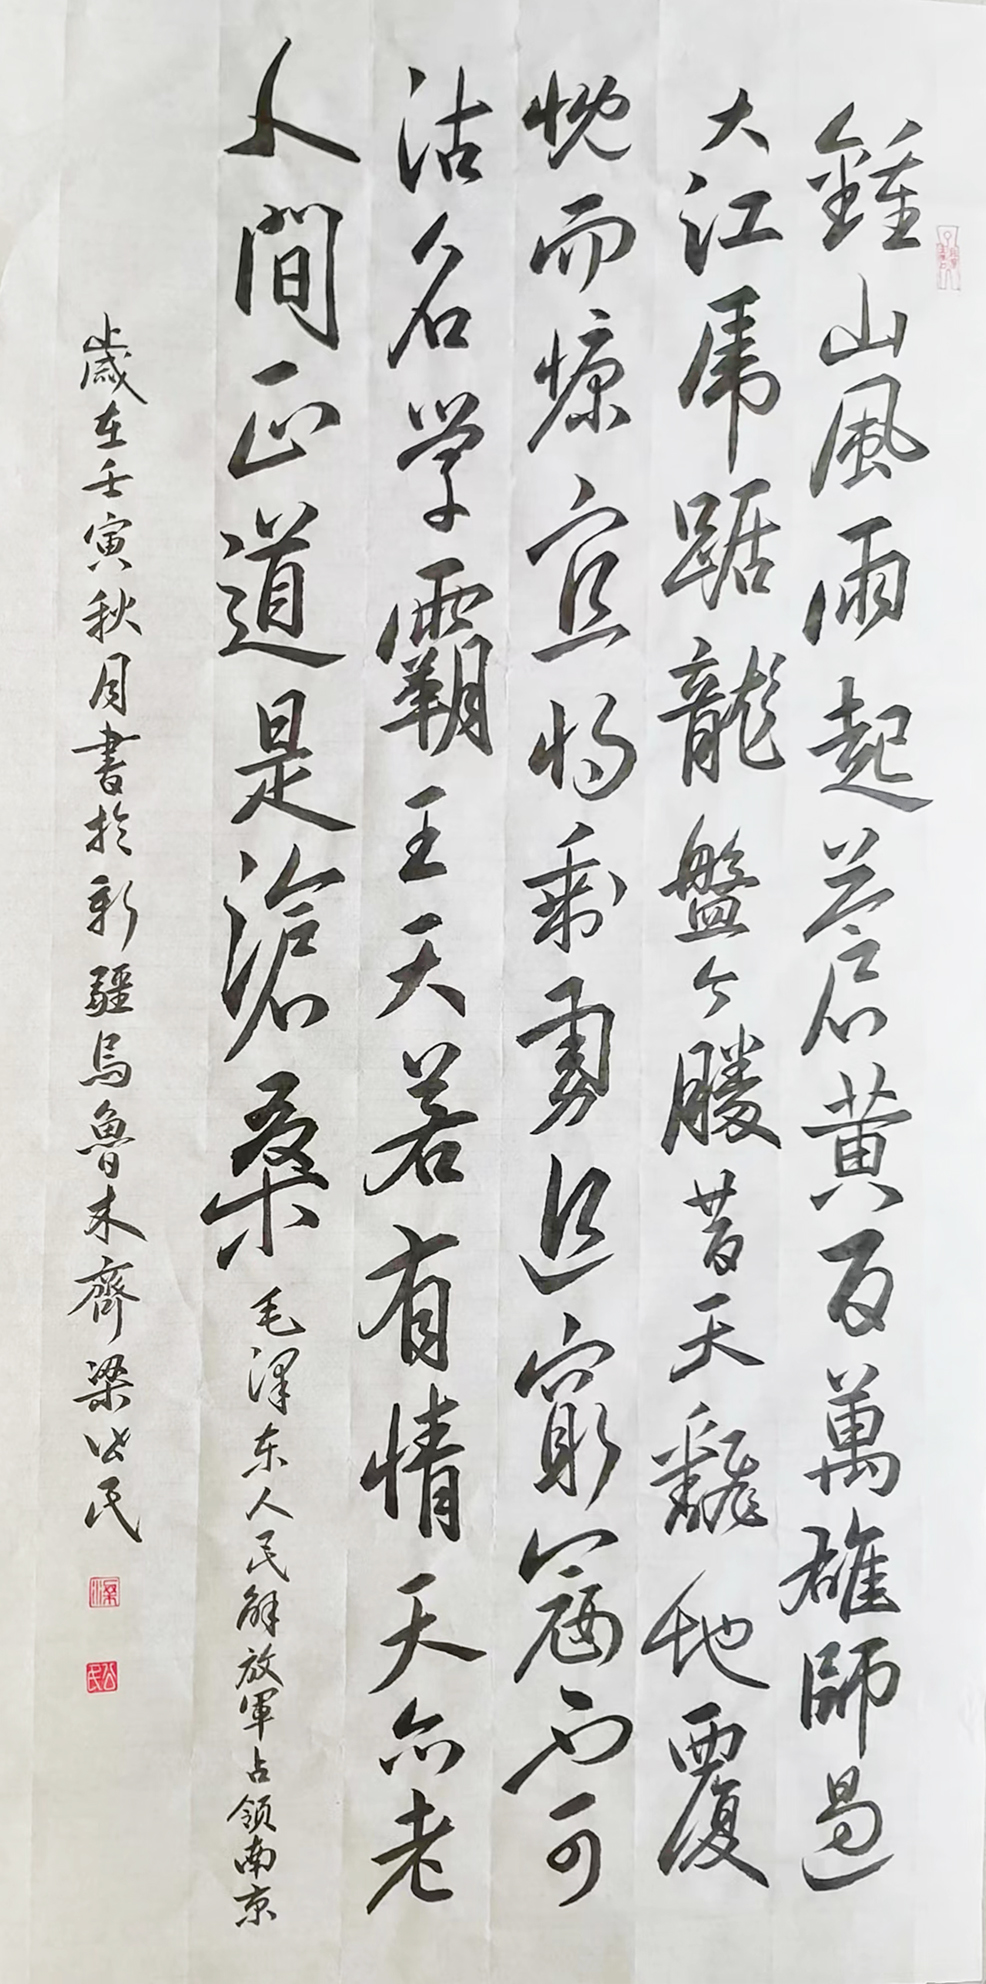 鍾山風雨起蒼黄百萬雄師過
大江虎踞龍盤今勝昔天飜地覆
慨而慷宜將剩勇追窮寇不可
沽名学霸王天若有情天亦老
人間正道是滄桑 毛澤东人民解放軍占領南京
歲在壬寅秋月書於新疆烏魯木齊梁公民
梁
公民